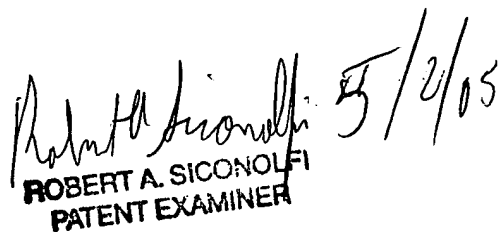 Robert A Siconolfi 5/2/05
ROBERT A. SICONOLFI
PATENT EXAMINER